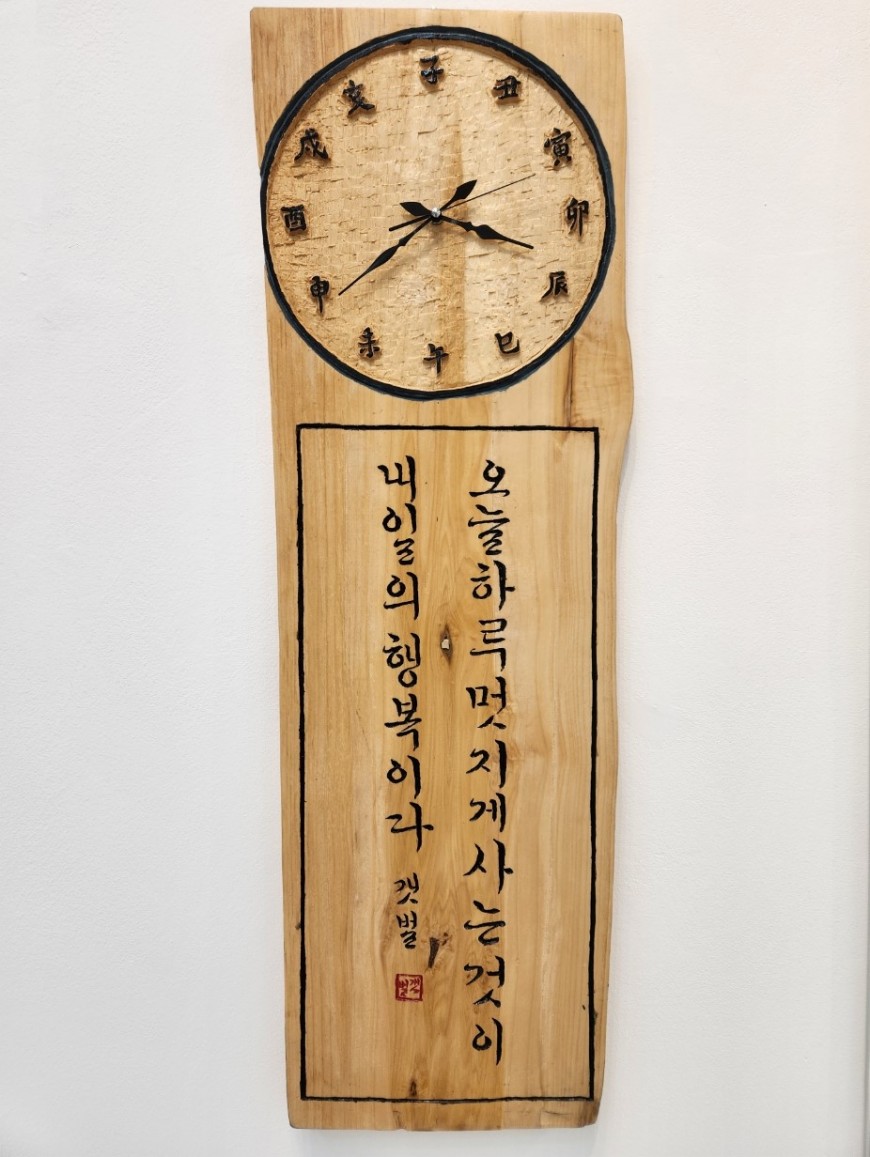 子
丑
寅
卯
辰
巳
午
未
申
酉
戌
亥
오늘하루멋지게사는것이
내일의행복이라
갯벌
갯벌